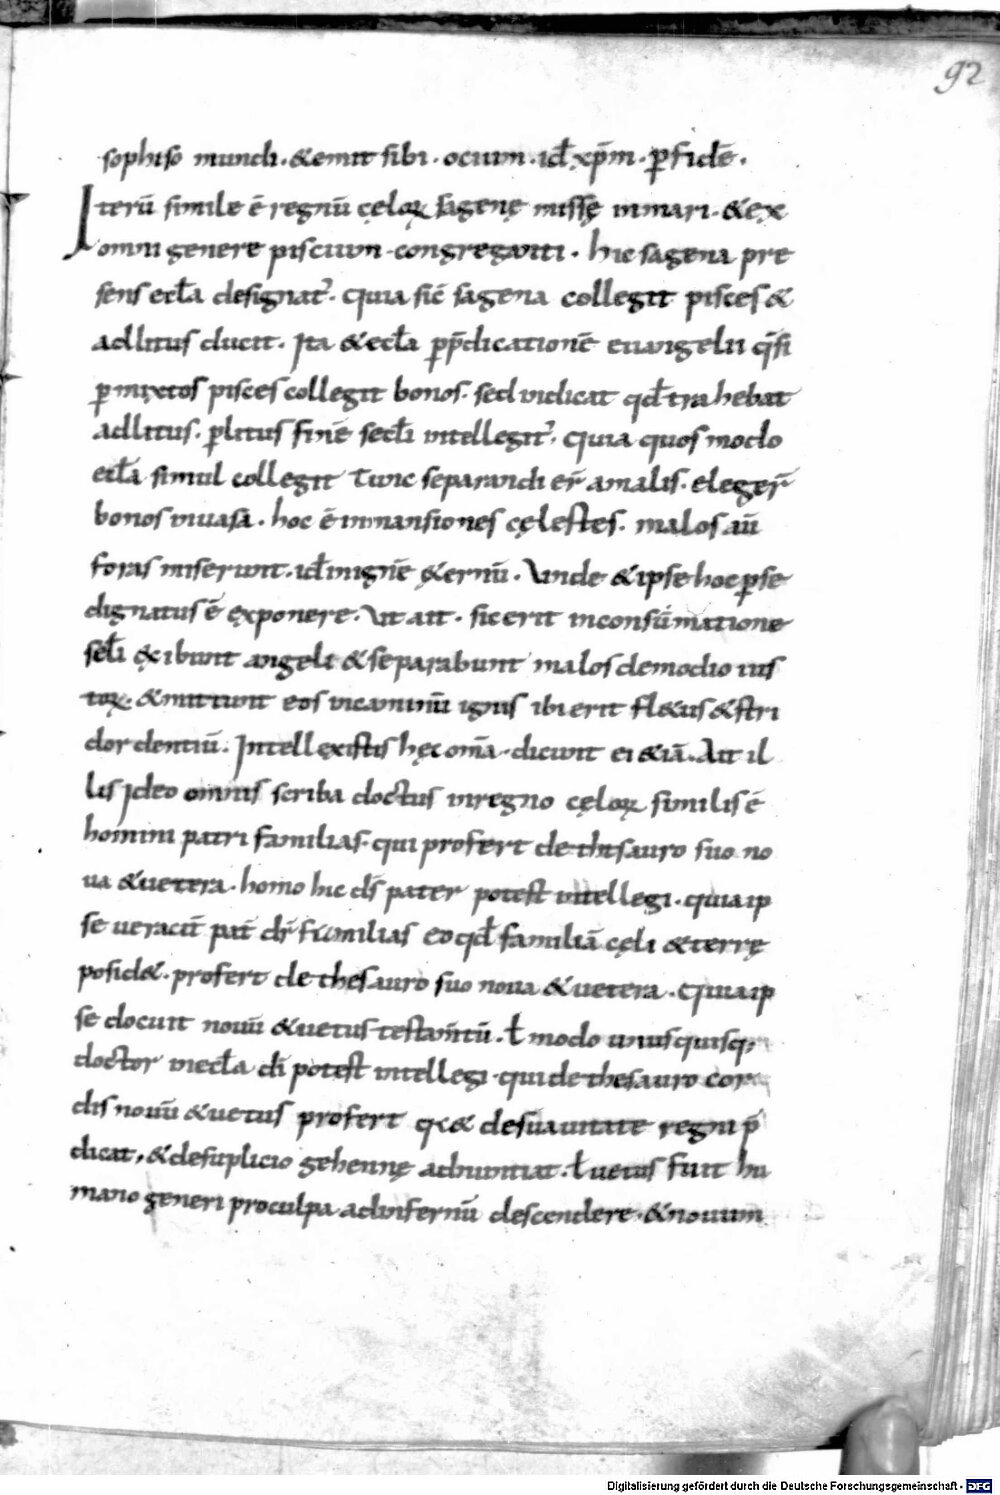 92
sophiso mundi. & emit sibi. ocium. id̄ xp̄m. p̲ fidē.
Iterū simile ē regnū cęloꝝ sagenę missę inmari. & ex
omni genere piscium. congreganti. hic sagena pre
sens eccƚa designat᷒. quia sic̄ sagena collegit pisces &
adlitus ducit. Ita & eccƚa p̲ p̄dicationē euangelii q̄si
p̲mixtos pisces collegit bonos. sed iudicat qd̄ trahebat
adlitus. p̲ litus finē secƚi intellegit᷒. quia quos modo
eccƚa simul collegit tunc separandi er̄ amalis. eleger̄
bonos inuasa. hoc ē inmansiones cęlestes. malos aū
foras miserunt. id̄ inignē &ernū. Unde & ipse hoc p̲ se
dignatus ē exponere. Ut ait. sic erit inconsūmatione
secƚi exibunt angeli & separabunt malos demedio ius
toꝝ. & mittunt eos incaminū ignis ibi erit fl&us & stri
dor dentiū. Intellexistis hęc om̄a. dicunt ei &iā. Ait il
lis Ideo omnis scriba doctus inregno cęloꝝ similis ē
homini patri familias. qui profert de thesauro suo no
ua & uetera. homo hic d̄s pater potest intellegi. quia ip
se ueracit̄ pat̄ dr̄ familias eo qd̄ familiā cęli & terrę
posid&. profert de thesauro suo noua & uetera. Quia ip
se docuit nouū & uetus testam̄tū. ƚ modo unusquisq;
doctor ineccƚa dī potest intellegi. qui de thesauro cor
dis nouū & uetus profert q̄ & desuauitate regni p̄
dicat, & desuplicio gehennę adnuntiat. ƚ uetus fuit hu
mano generi proculpa adinfernū descendere. & nouum
Digitalisierung gefördert durch die Deutsche Forschungsgemeinschaft - DFG